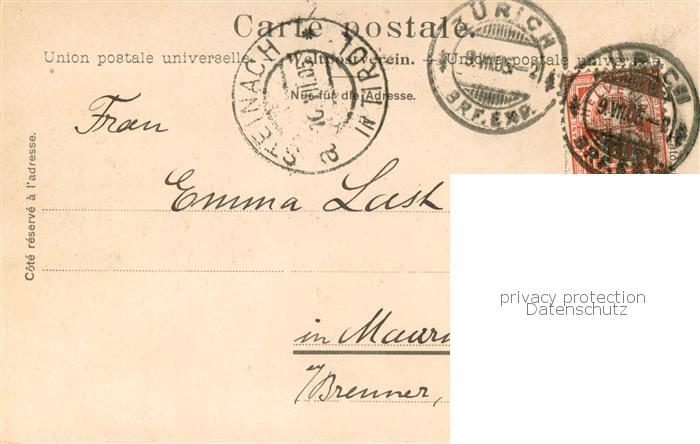 Carte postale.
Union postale universelle. — Weltpostverein. — Unione postale universale.
Nur für die Adresse.
Côté réservé à l'adresse.
STEINACH * IN TIROL
ZÜRICH
BRF.EXP.
ZÜRICH
BRF.EXP.
HELVETIA
Frau
Emma Last
in Mauri
a/Brenner,
privacy protection
Datenschutz